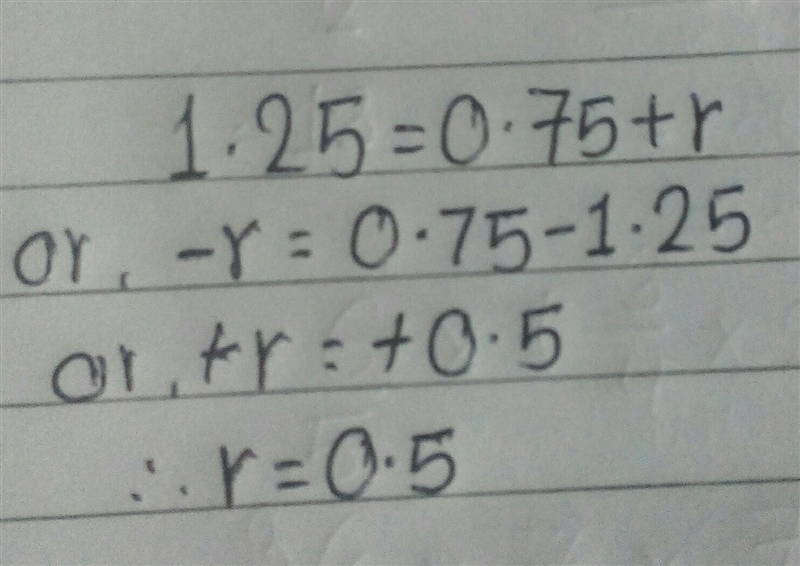 1.25=0.75+r
or, -r = 0.75-1.25
or, +r = +0.5
∴ r=0.5